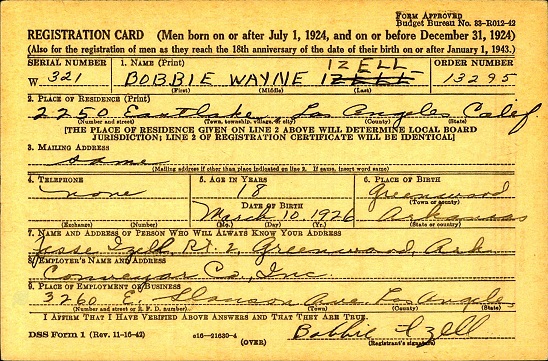 FORM APPROVED
Budget Bureau No. 33-R012-42
REGISTRATION CARD (Men born on or after July 1, 1924, and on or before December 31, 1924)
(Also for the registration of men as they reach the 18th anniversary of the date of their birth on or after January 1, 1943.)
SERIAL NUMBER 1. NAME (Print) ORDER NUMBER
IZELL
W 321 BOBBIE WAYNE IZELL 13295
(First) (Middle) (Last)
2. PLACE OF RESIDENCE (Print)
2250 Eastlake, Los Angeles Calif
(Number and street) (Town, township, village, or city) (County) (State)
[THE PLACE OF RESIDENCE GIVEN ON LINE 2 ABOVE WILL DETERMINE LOCAL BOARD
JURISDICTION; LINE 2 OF REGISTRATION CERTIFICATE WILL BE IDENTICAL]
3. MAILING ADDRESS
same
(Mailing address if other than place indicated on line 2. If same, insert word same)
4. TELEPHONE 5. AGE IN YEARS 6. PLACE OF BIRTH
none 18 Greenwood
(Town or county)
DATE OF BIRTH
March 10, 1926 Arkansas
(Exchange) (Number) (Mo.) (Day) (Yr.) (State or country)
7. NAME AND ADDRESS OF PERSON WHO WILL ALWAYS KNOW YOUR ADDRESS
Jesse Izell, Rt. 2, Greenwood, Ark.
8. EMPLOYER'S NAME AND ADDRESS
Co., Inc.
9. PLACE OF EMPLOYMENT OR BUSINESS
3260 E. Slauson Ave. Los Angeles
(Number and street or R. F. D. number) (Town) (County) (State)
I AFFIRM THAT I HAVE VERIFIED ABOVE ANSWERS AND THAT THEY ARE TRUE.
Bobbie Izell
DSS Form 1 (Rev. 11-16-42) c16—21630-4 (Registrant's signature)
(OVER)